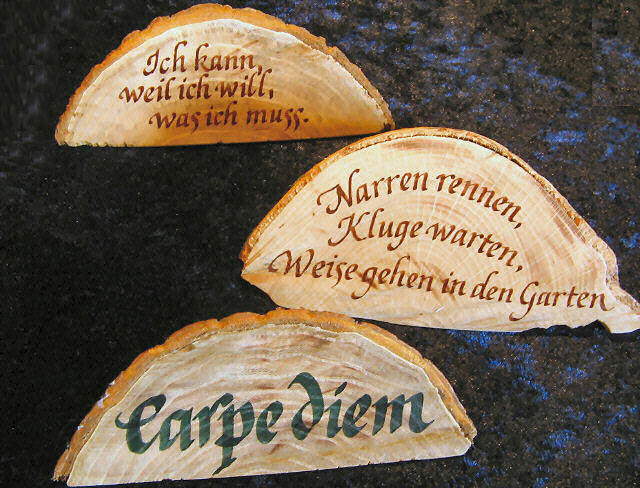 Ich kann,
weil ich will,
was ich muss.
Narren rennen,
Kluge warten,
Weise gehen in den Garten
Carpe diem